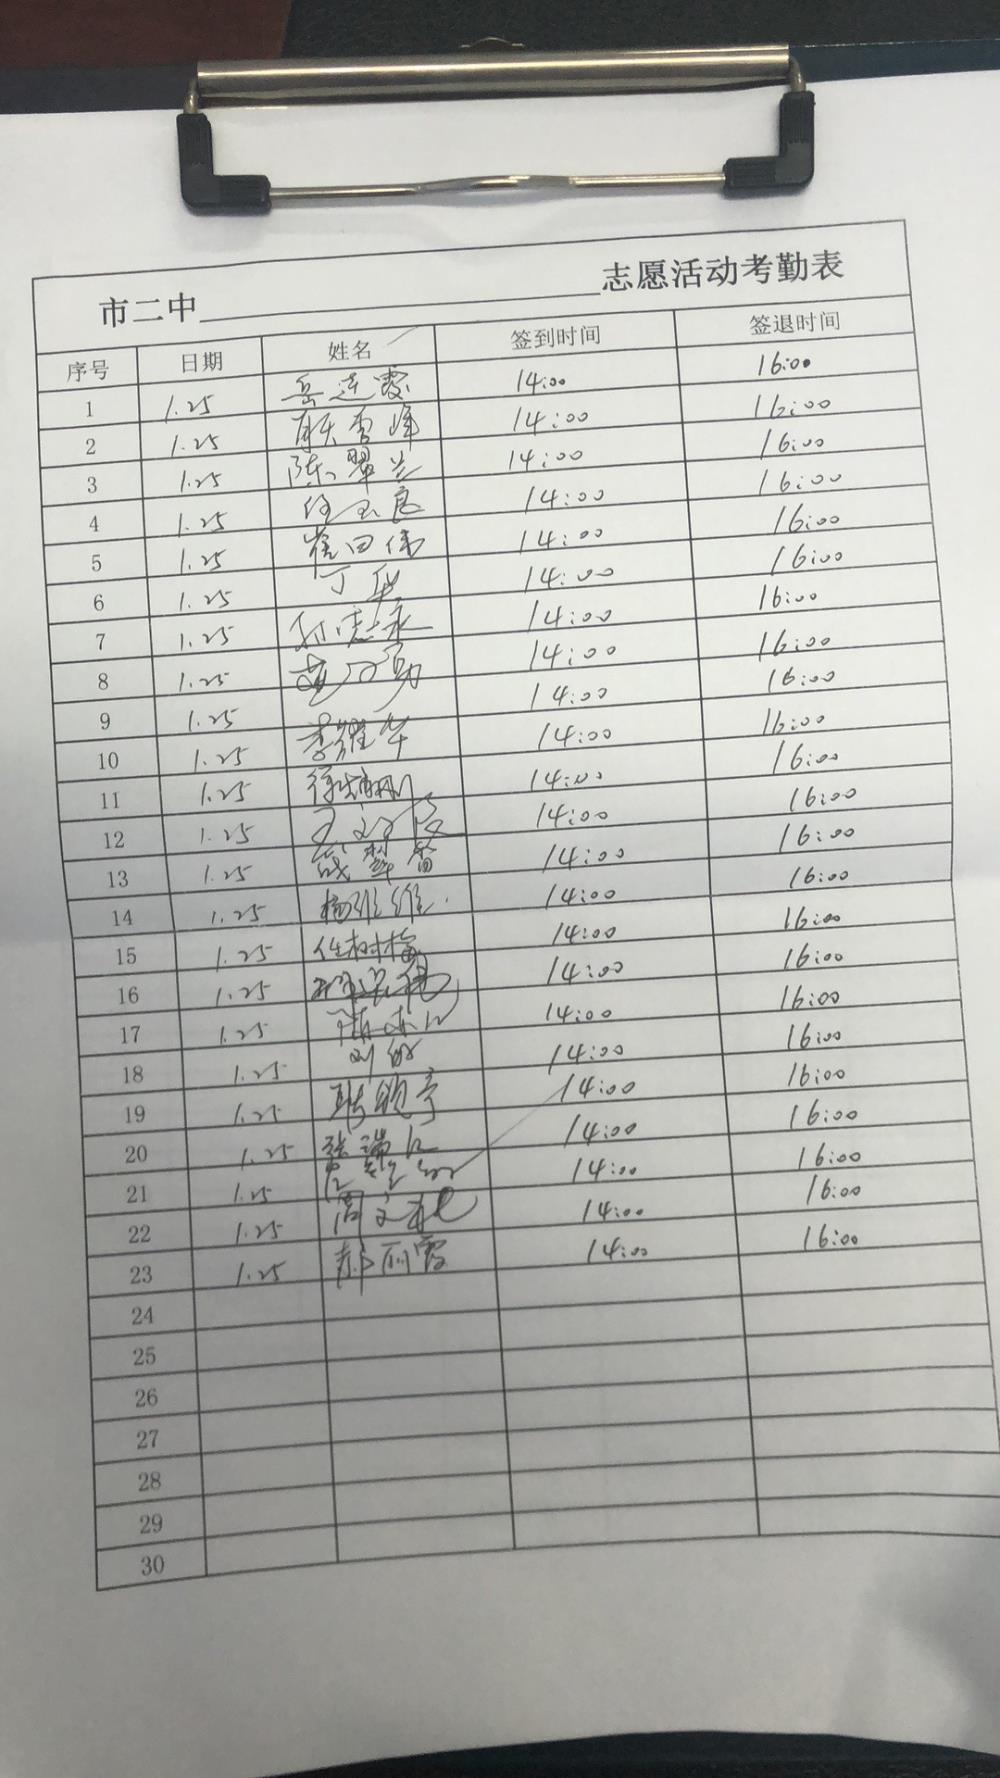 市二中 志愿活动考勤表
序号 日期 姓名 签到时间 签退时间
1 1.25 岳连霞 14:00 16:00
2 1.25 雪峰 14:00 16:00
3 1.25 陈翠兰 14:00 16:00
4 1.25 任玉良 14:00 16:00
5 1.25 崔田伟 14:00 16:00
6 1.25 丁 14:00 16:00
7 1.25 14:00 16:00
8 1.25 14:00 16:00
9 1.25 14:00 16:00
10 1.25 李耀华 14:00 16:00
11 1.25 徐 14:00 16:00
12 1.25 14:00 16:00
13 1.25 14:00 16:00
14 1.25 杨维维 14:00 16:00
15 1.25 任树梅 14:00 16:00
16 1.25 14:00 16:00
17 1.25 14:00 16:00
18 1.25 刘 14:00 16:00
19 1.25 14:00 16:00
20 1.25 张瑞红 14:00 16:00
21 1.25 14:00 16:00
22 1.25 周文礼 14:00 16:00
23 1.25 郝丽霞 14:00 16:00
24
25
26
27
28
29
30